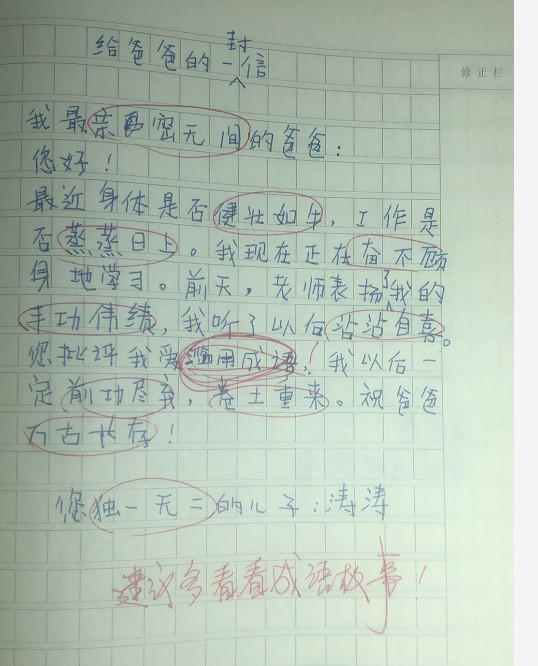 给爸爸的一封信
修正栏
我最亲密无间的爸爸：
您好！
最近身体是否健壮如牛，工作是
否蒸蒸日上。我现在正在奋不顾
身地学习。前天，老师表扬了我的
丰功伟绩，我听了以后沾沾自喜。
您批评我爱滥用成语！我以后一
定前功尽弃，卷土重来。祝爸爸
万古长存！
您独一无二的儿子：涛涛
建议多看看成语故事！